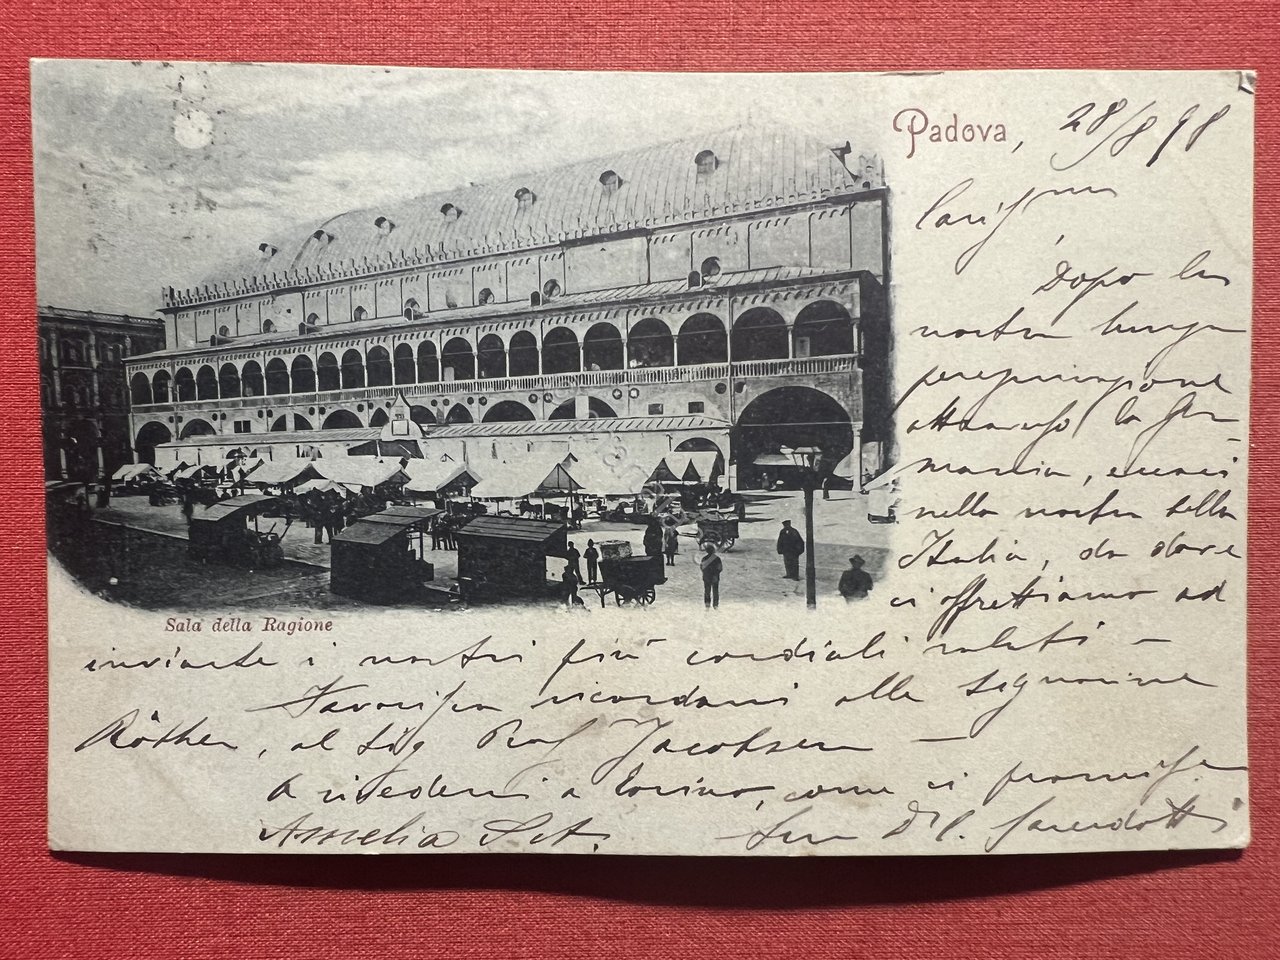 Padova, 28/8 98
Dopo la
nostra lunga
peregrinazione
attraverso la Ger
mania, eccoci
nella nostra bella
Italia, da dove
ci affrettiamo ad
Sala della Ragione
inviarle i nostri più cordiali saluti –
Favorisca ricordarci alle Signorine
Röther, al Sig Prof Jacobsen –
A rivederci a Torino, come ci promise
Amelia Sct. Dr C. Sacerdotti